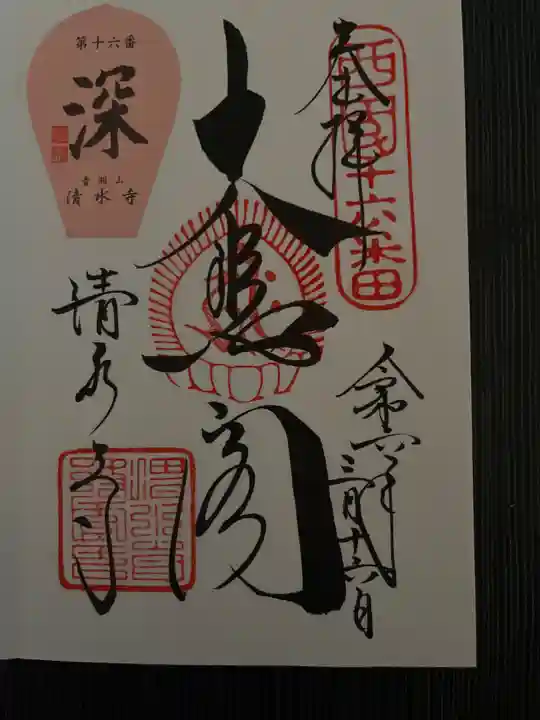 奉拝
西国十六番
令和六年
三月十六日
大悲閣
清水寺
第十六番
深
音羽山
清水寺